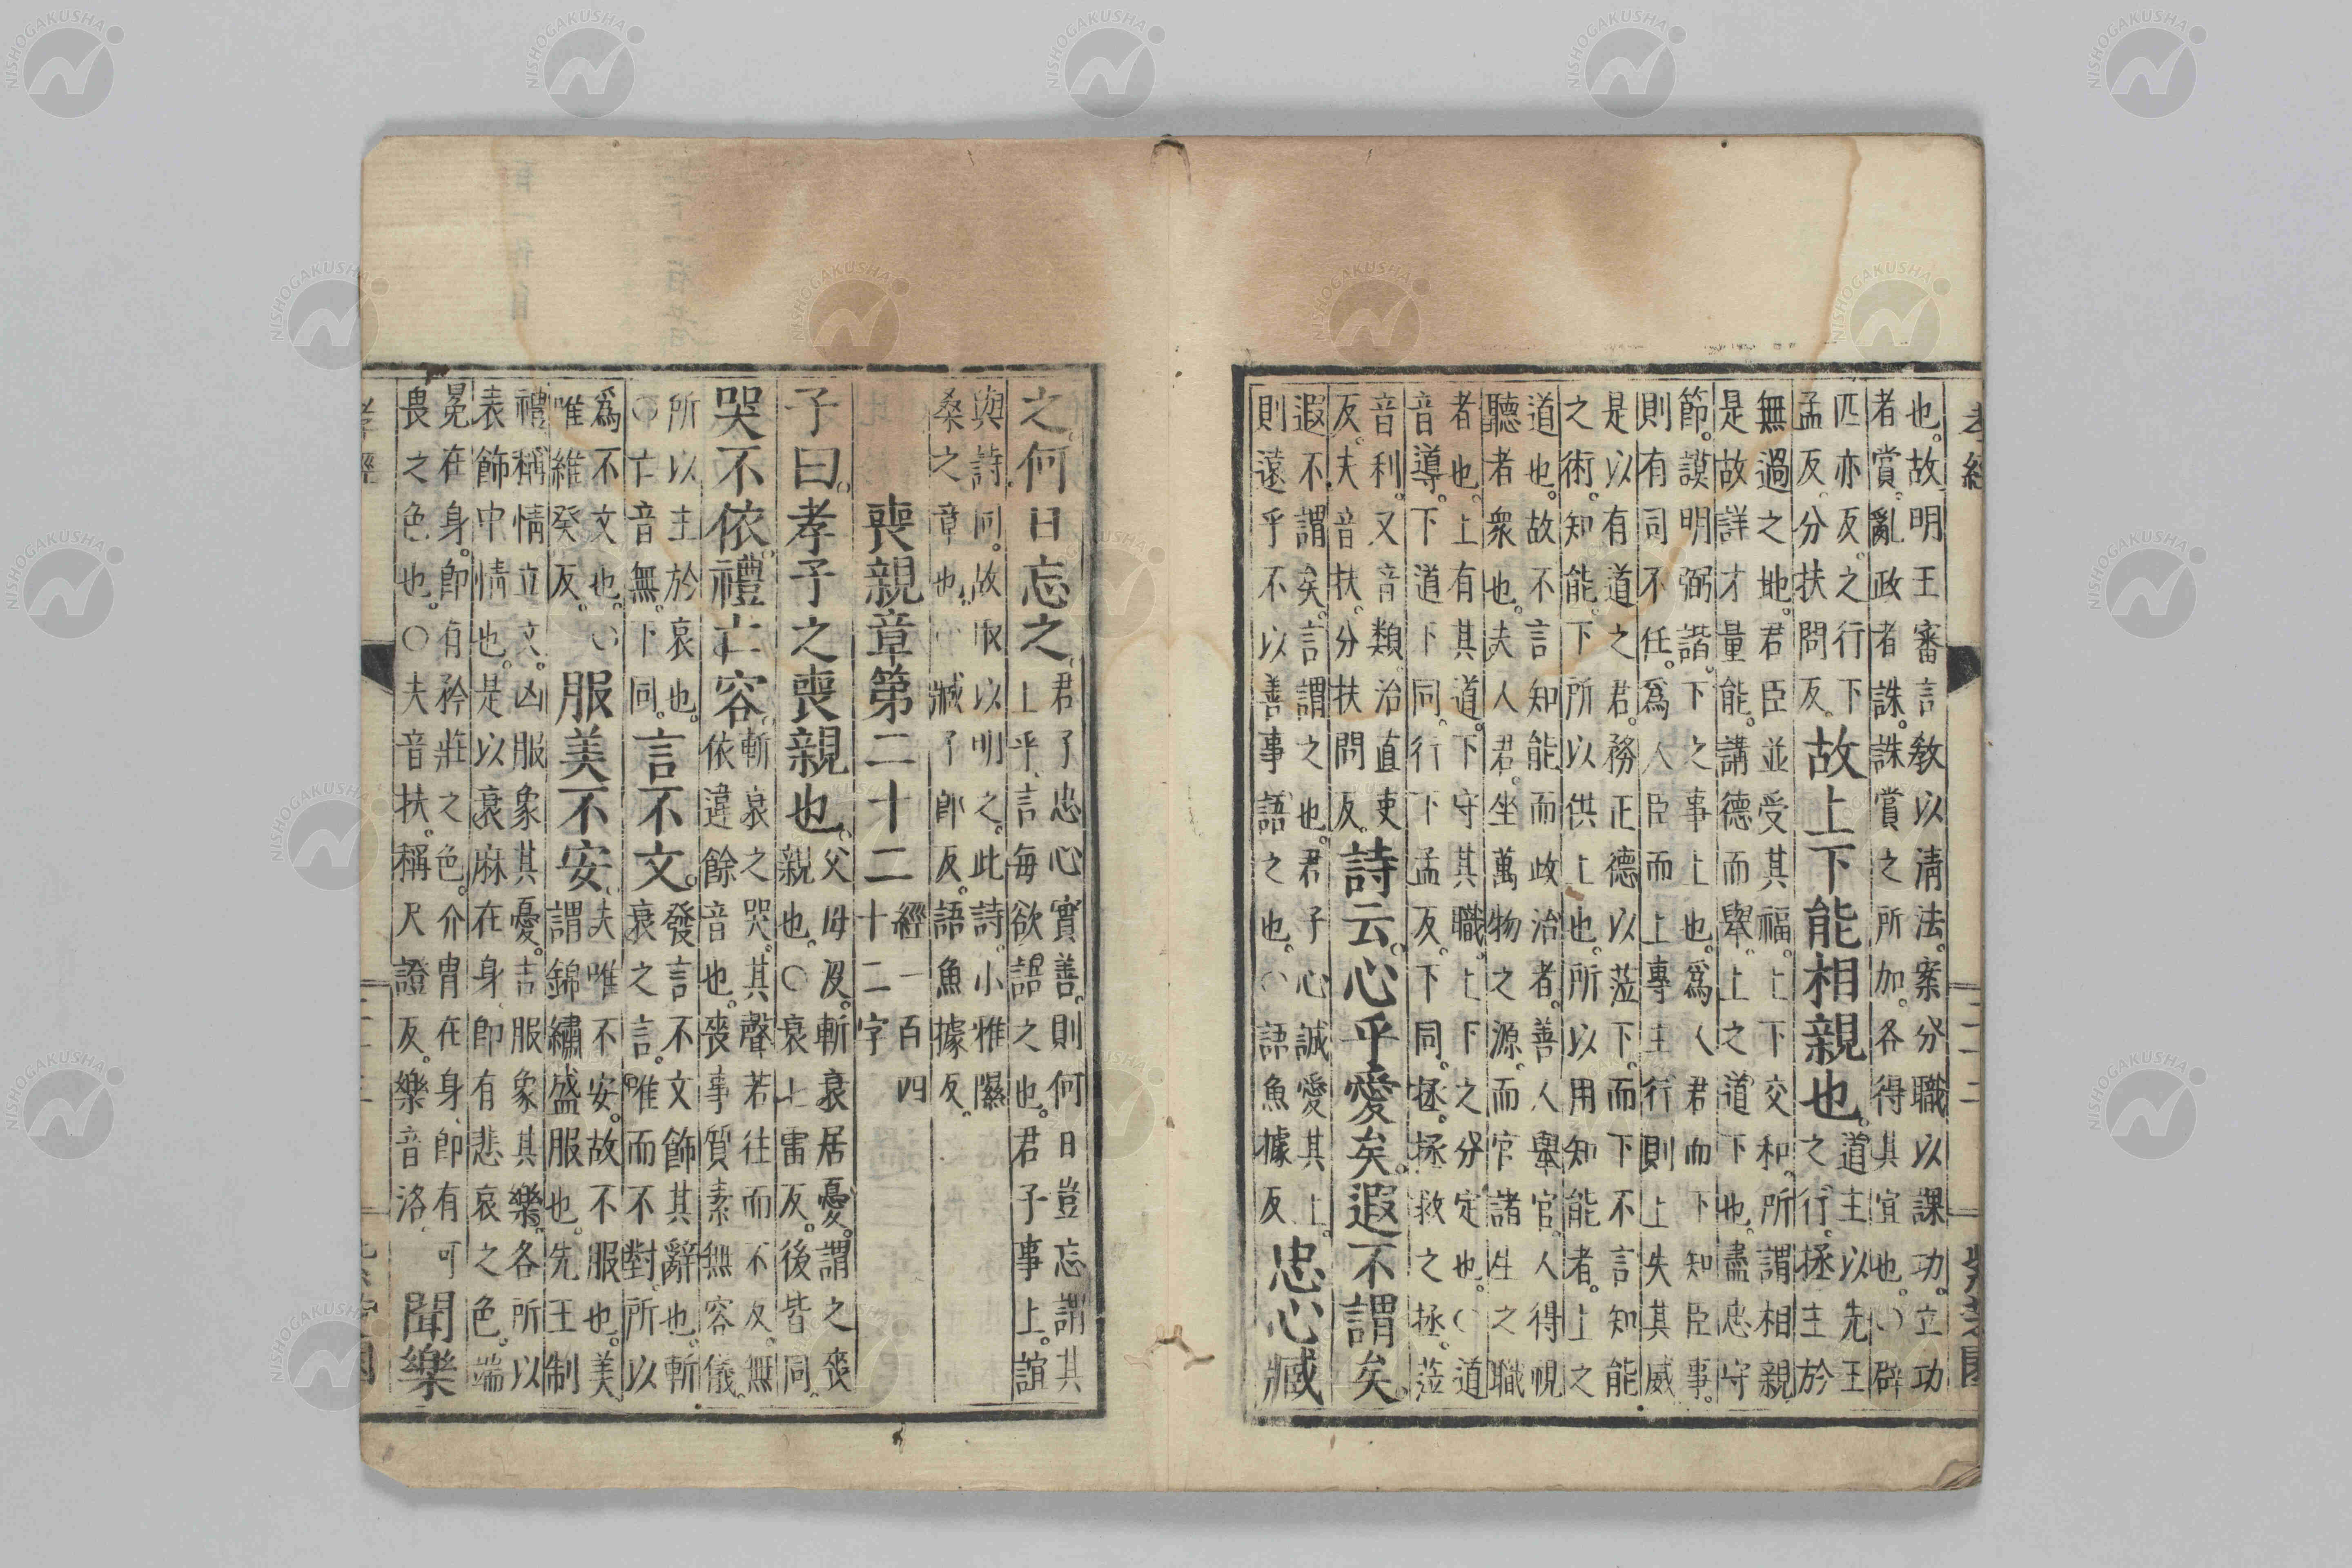 孝經 二十二 紫芝園
也。故明王審言教以淸法。案分職以課功。立功
者賞。亂政者誅。誅賞之所加。各得其宜也。○辟
匹亦反。之行下
孟反。分扶問反。
故上下能相親也。
道主以先王
之行。拯主於
無過之地。君臣並受其福。上下交和。所謂相親
是故詳才量能。講德而舉。上之道下也。盡忠守
節。謨明弼諧。下之事上也。爲人君而下知臣事。
則有司不任。爲人臣而上專主行則上失其威
是以有道之君。務正德以蒞下。而下不言知能
之術。知能。下所以供上也。所以用知能者。上之
道也。故不言知能而政治者。善人舉官。人得視
聽者衆也。夫人君。坐萬物之源。而官諸生之職
者也。上有其道。下守其職。上下之分定也。○道
音導。下道下同。行下孟反。下同。拯。拯救之拯。蒞
音利。又音類。治直吏
反。夫音扶。分扶問反。
詩云。心乎愛矣。遐不謂矣。
遐不。謂矣。言謂之也。君子心誠愛其上。
則遠乎不以善事語之也。○語魚據反
忠心臧
之。何日忘之。
君子忠心實善。則何日豈忘謂其
上乎。言每欲語之也。君子事上。誼
與詩同。故取以明之。此詩。小雅隰
桑之章也。○臧子郎反。語魚據反。
喪親章第二十二
經一百四
十二字
子曰。孝子之喪親也。
父母沒。斬衰居憂。謂之喪
親也。○衰上雷反。後皆同。
哭不依。禮亡容。
斬衰之哭。其聲若往而不反。無
依違餘音也。喪事質素無容儀。
所以主於哀也。
○亡音無。下同。
言不文。
發言不文飾其辭也。斬
衰之言。唯而不對。所以
爲不文也。○
唯維癸反。
服美不安。
夫唯不安。故不服也。美
謂錦繡盛服也。先王制
禮稱情立文。凶服象其憂。吉服象其樂。各所以
表飾中情也。是以衰麻在身。卽有悲哀之色。端
冕在身。卽有矜莊之色。介胄在身。卽有可
畏之色也。○夫音扶。稱尺證反。樂音洛。
聞樂
孝經
NISHOGAKUSHA